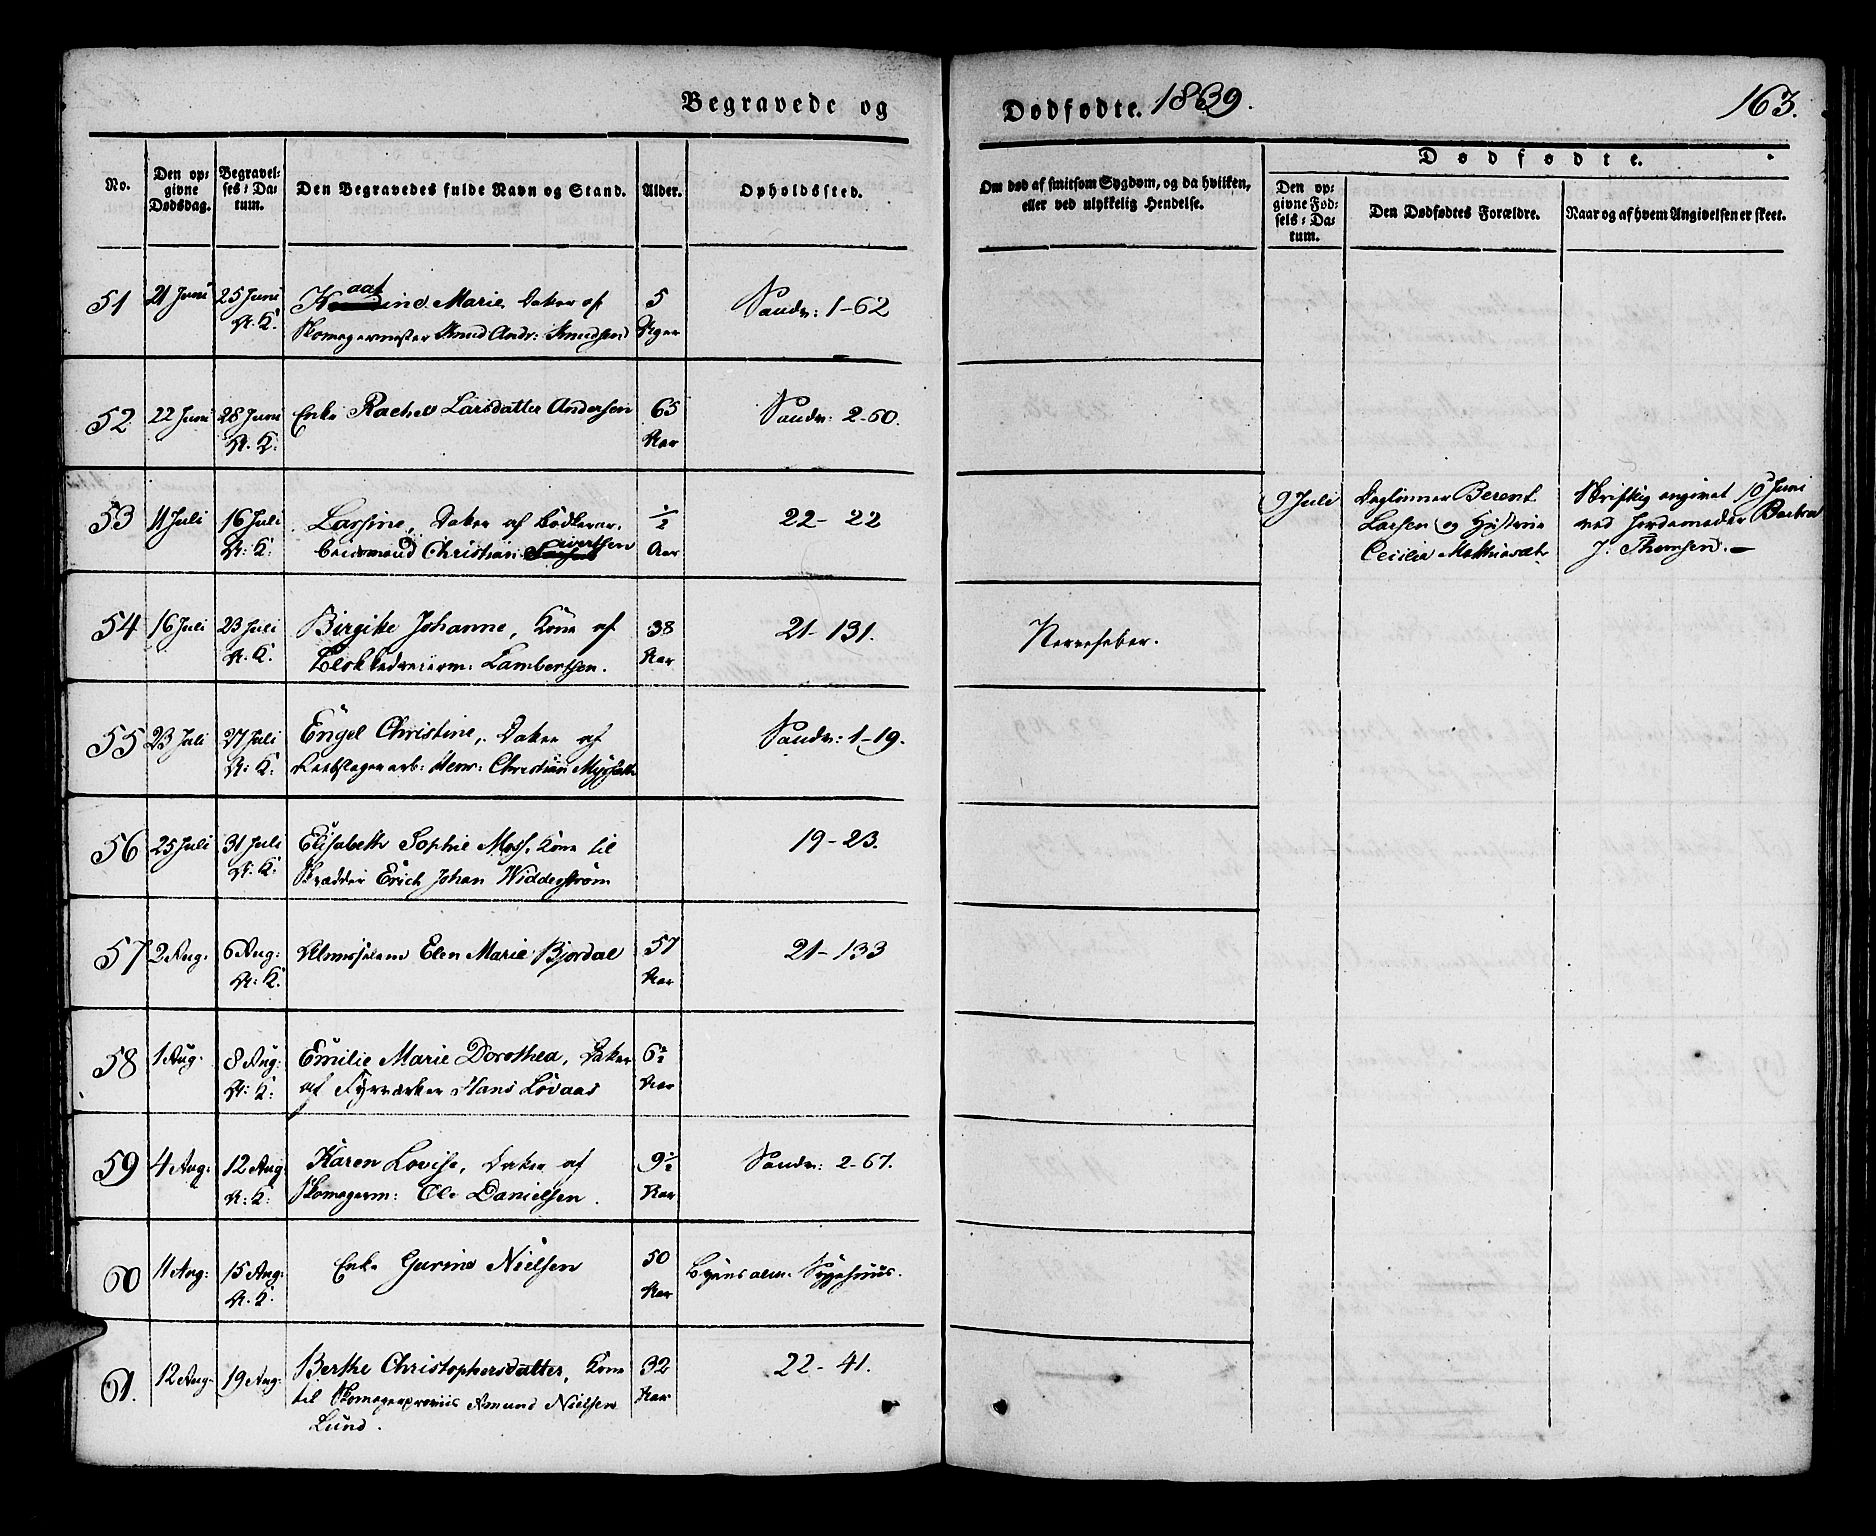 Begravede og
Dødfødte. 1839.
163.
No.
Den opgivne Dødsdag.
Begravelses-Datum.
Den Begravedes fulde Navn og Stand.
Alder.
Opholdssted.
Om død af smitsom Sygdom, og da hvilken,
eller ved ulykkelig Hendelse.
Dødfødte.
Den opgivne Fødsels-Datum.
Den Dødfødtes Forældre.
Naar og af hvem Angivelsen er skeet.
51 21 Juni 25 Juni Marie, Datter af 5 Sandv: 1-62
A. K. Skomagermester Knud Andr: Knudsen Uger
52 22 Juni 28 Juni Enke Rachel Larsdatter Andersen 65 Sandv: 2-60.
A. K. Aar
53 11 Juli 16 Juli Lassine, Datter af Bødker- ½ 22-22
A. K. Christian Sivertsen Aar
9 Juli Dagleiner Berent Skriftlig angivet 10 Juni
Larsen og Hustrue ved Jordemoder
Cecilia Mathiesdt. J. Thomsen.
54 16 Juli 23 Juli Birgitte Johanne, Kone af 38 21-131. Nervefeber.
A. K. Blokkedreierm: Lambertsen. Aar
55 23 Juli 27 Juli Engel Christine, Datter af Sandv: 1-19.
A. K. Reebslagerarb: Henr: Christian
56 25 Juli 31 Juli Elisabeth Sophie Moss, Kone til 19-23.
A. K. Skrædder Erich Johan Widdegstrøm
57 2 Aug. 6 Aug: Almisselem Elen Marie Bjordal 57 21-133
A. K. Aar
58 1 Aug. 8 Aug: Emilie Marie Dorothea, Datter 6½
A. K. af Fyrværker Hans Lovaas Aar
59 4 Aug: 12 Aug: Karen Lovise, Datter af 9½ Sandv: 2-67.
A. K. Skomagerm: Ole Danielsen. Aar
60 11 Aug: 15 Aug: Enke Gurine Nielsen 50 Byens alm: Sygehuus.
A. K. Aar
61. 12 Aug. 19 Aug: Berthe Christophersdatter, Kone 32 22-41.
til Amund Nielsen Aar
Lund.